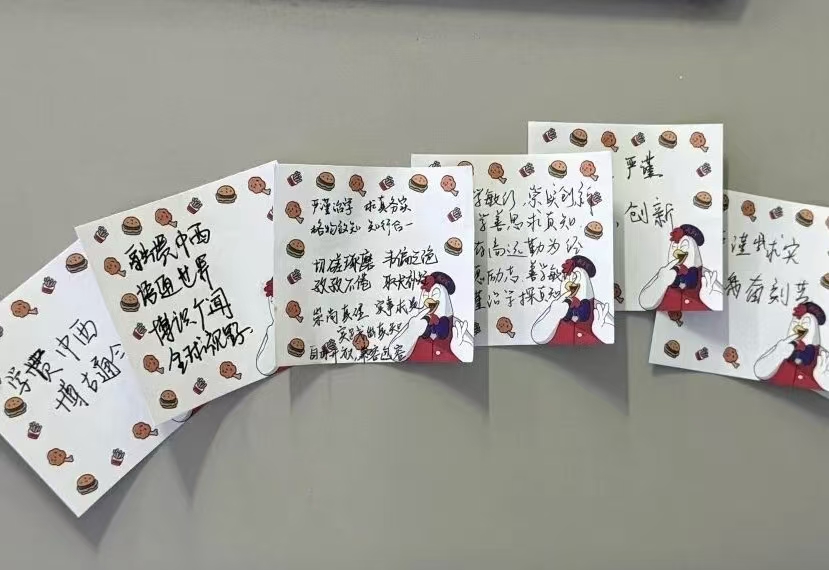 学贯中西
博古通
融贯中西
博通世界
博识广闻
全球视野
严谨治学 求真务实
格物致知 知行合一
切磋琢磨
孜孜不倦
崇尚真理 实事求是
实践出真知
学敏行 崇实创新
学善思求真知
志高远勤为径
励志 善学敏
谨治学探真知
严谨
创新
谨 求实
奋刻苦